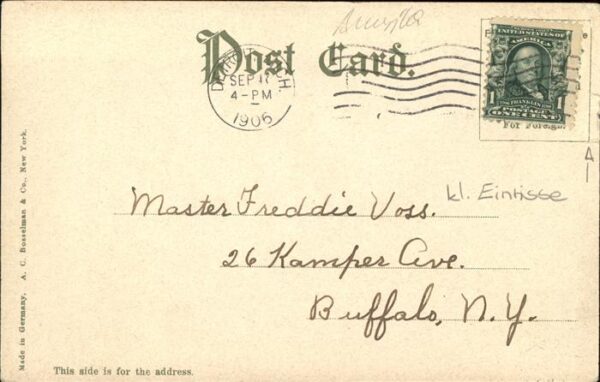 Post Card.
DETROIT, MICH.
SEP 11
4-PM
1906
UNITED STATES OF AMERICA
FRANKLIN
1 POSTAGE 1
ONE CENT
For Foreign
kl. Einrisse
Master Freddie Voss.
26 Kamper Ave.
Buffalo, N.Y.
This side is for the address.
Made in Germany. A. C. Bosselman & Co., New York.